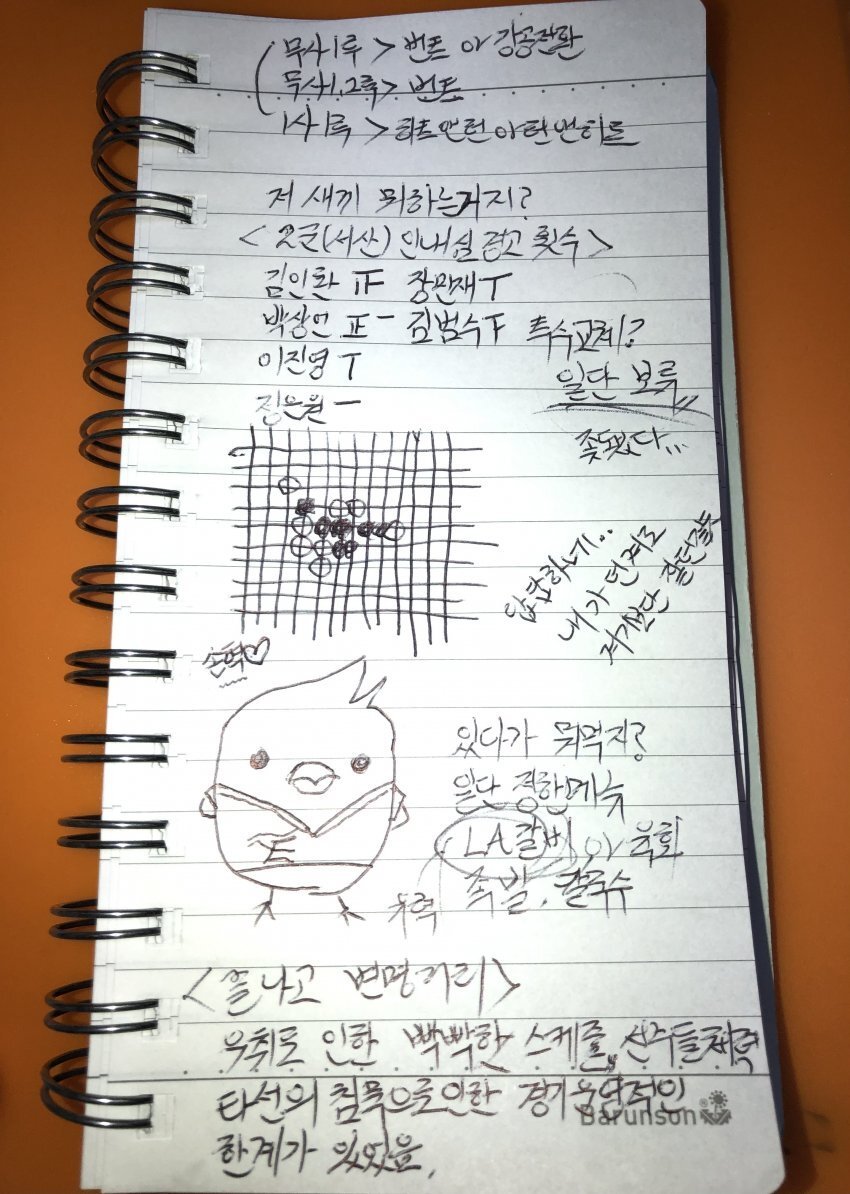 무사1루 > 번트 or 강공전환
무사1,2루 > 번트
1사1루 > 히트앤런 아 런앤히트
저 새끼 뭐하는거지?
<2군(서산) 인내실 경고 횟수>
김인환 正F 장민재 T
박상언 正一 김범수 F
투수교체?
이진영 T
일단 보류
정은원 一
좆됐다...
답답하네..
내가 던져도
저거보단 잘던질듯
손혁♡
E
있다가 뭐먹지?
일단 정한메뉴
LA갈비 or 육회
족발, 칼국수
유력
<끝나고 변명거리>
우취로 인한 빡빡한 스케줄, 선수들체력
타선의 침묵으로인한 경기운영적인
한계가 있었음.
Barunson